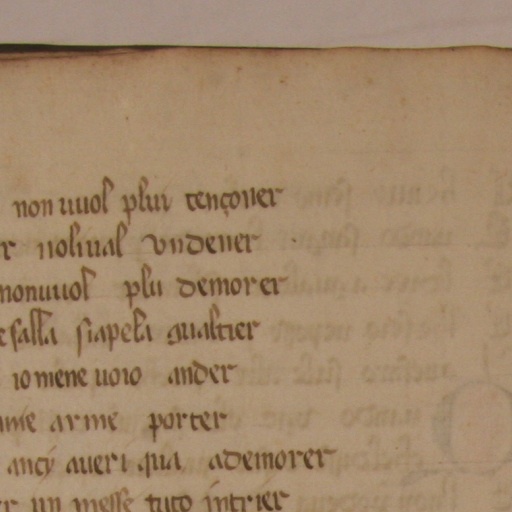 non uuol plui tençoner
r noli ual vn dener
non uuol plu demorer
e falla si apella gualtier
io me ne uoio ander
me arme porter
ancy aueri qua a demorer
er un messe tuto intrier